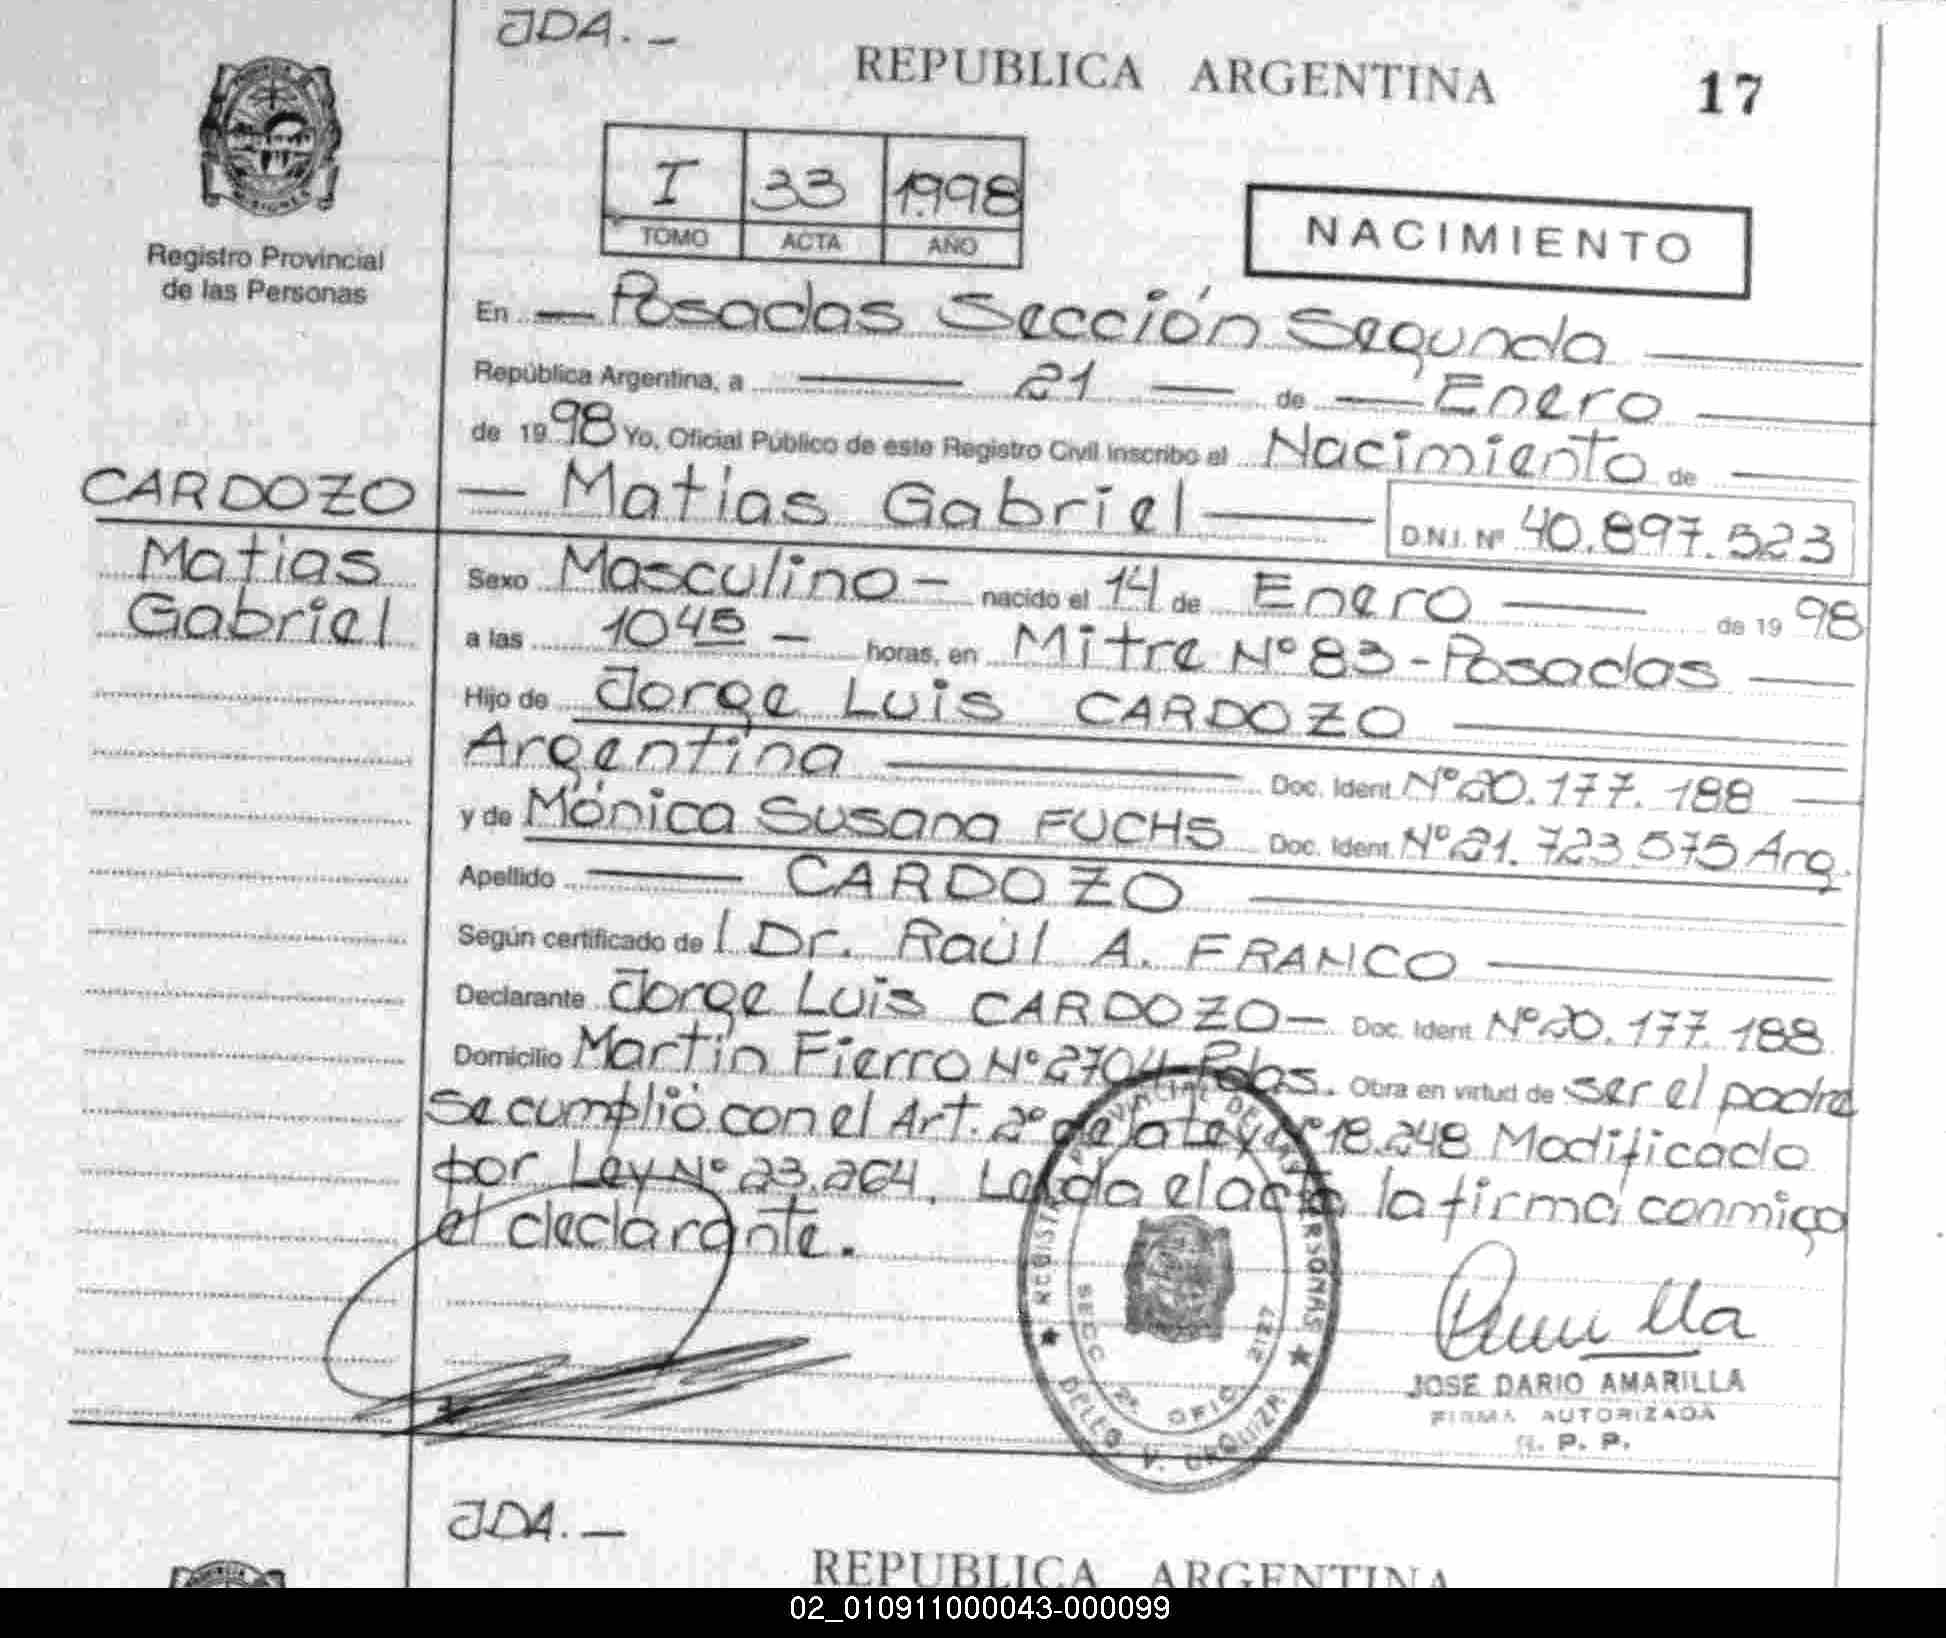 JDA.-
REPUBLICA ARGENTINA 17
Registro Provincial
de las Personas
I 33 1998
TOMO ACTA AÑO
NACIMIENTO
En Posadas Sección Segunda
República Argentina, a 21 de Enero
de 1998 Yo, Oficial Público de este Registro Civil Inscribo el Nacimiento de
CARDOZO
Matias Gabriel D.N.I. Nº 40.897.523
Matias
Gabriel
Sexo Masculino - nacido el 14 de Enero de 1998
a las 10 45 - horas, en Mitre Nº 83 - Posadas
Hijo de Jorge Luis CARDOZO
Argentina Doc. Ident. Nº 20.177.188
y de Mónica Susana FUCHS Doc. Ident. Nº 21.723 575 Arg.
Apellido CARDOZO
Según certificado de l Dr. Raúl A. FRANCO
Declarante Jorge Luis CARDOZO - Doc. Ident. Nº 20.177.188
Domicilio Martín Fierro Nº 2704 Pdas. Obra en virtud de ser el padre
Se cumplió con el Art. 2º de la Ley Nº 18.248 Modificado
por Ley Nº 23.264. Leída el acta la firma conmigo
el declarante.
REGISTRO PROVINCIAL DE LAS PERSONAS
SECC. 2ª. OFIC. 2127
DELEG. V. URQUIZA
JOSE DARIO AMARILLA
FIRMA AUTORIZADA
R. P. P.
JDA.-
REPUBLICA ARGENTINA
02_010911000043-000099